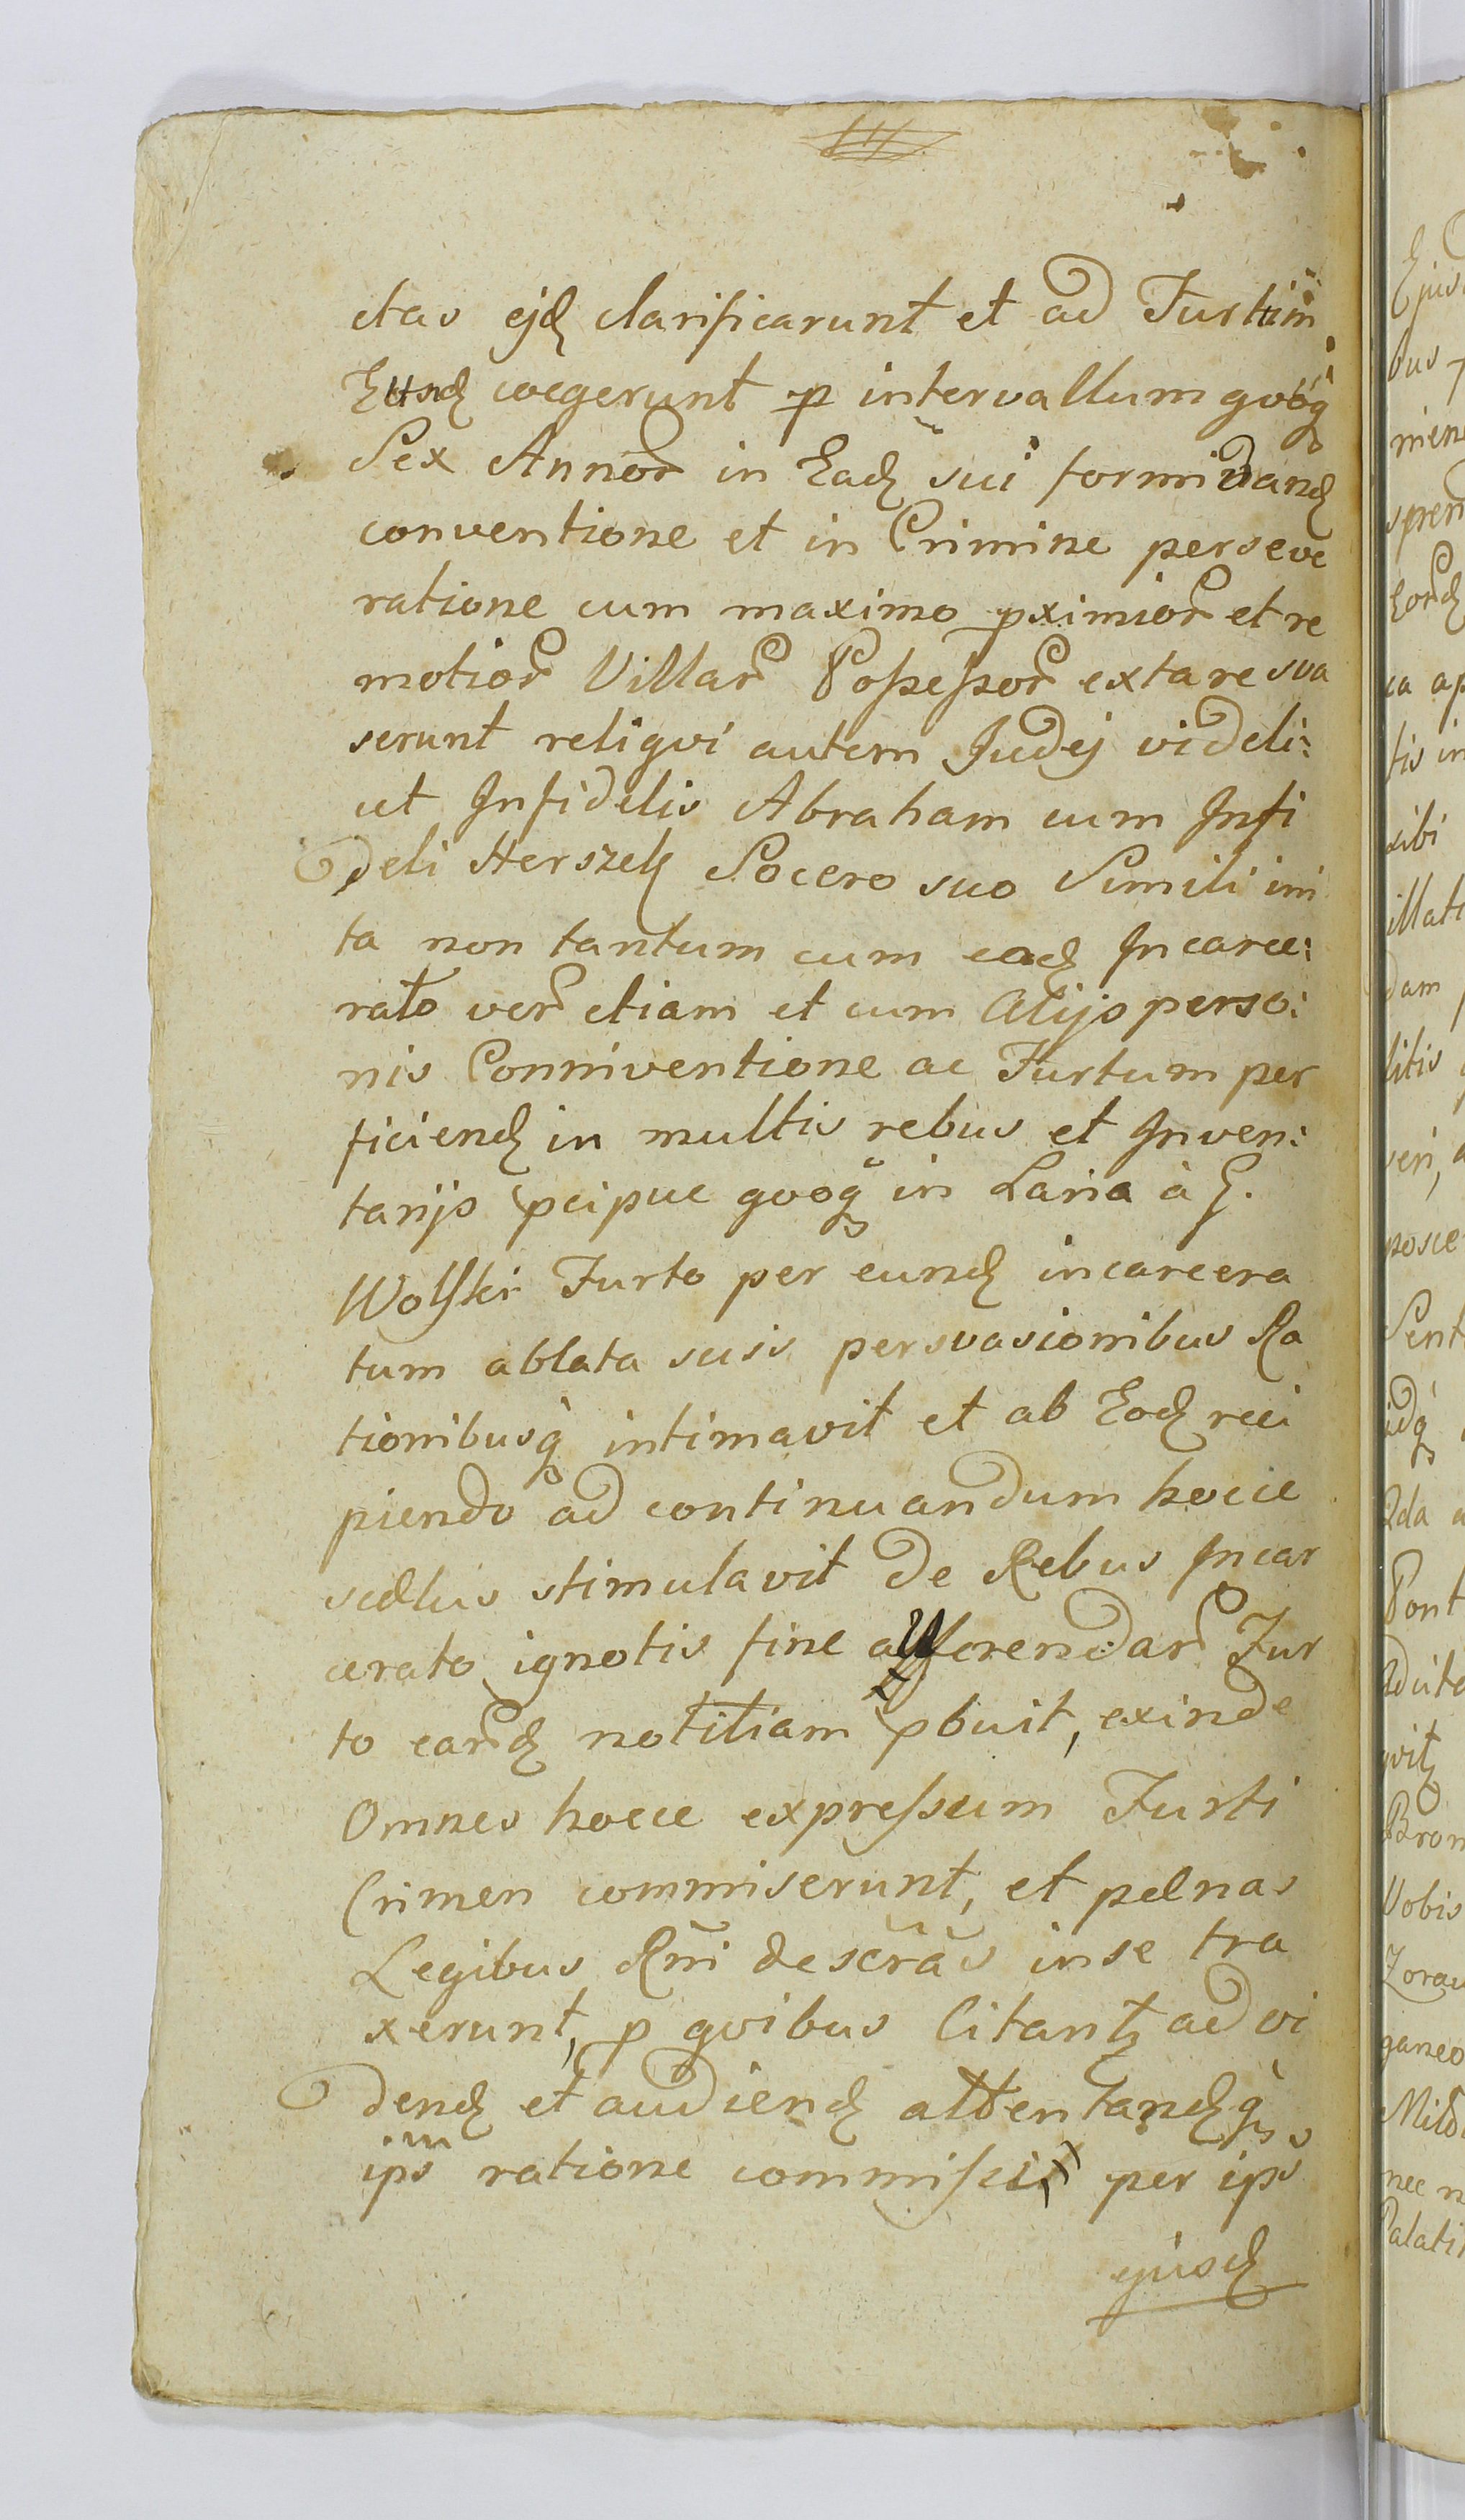 ctas ejd clarificarunt et ad Furtum
Eund coegerunt p intervallum gvoq
Sex Annor in Ead sui formidand
conventione et in Crimine perseve
ratione cum maximo pximior et re
motior Villar Possessor extare sva
serunt religvi autem Judej videli:
cet Infidelis Abraham cum Infi
deli Herszek Socero suo Simili ini
ta non tantum cum eod Incarce:
rato ver etiam et cum Alijs perso:
nis Conniventione ac Furtum per
ficiend in multis rebus et Inven:
tarijs pcipue gvoq in Lana à G.
Wolski Furto per eund incarcera
tum ablata suis persvasionibus Ra
tionibusq intimavit et ab Eod reci
piendo ad continuandum hocce
scelus stimulavit de Rebus Incar
cerato ignotis fine afferendar Fur
to eard notitiam pbuit, exinde
Omnes hocce expressum Furti
Crimen commiserunt, et pænas
Legibus Rni descras in se tra
xerunt, p gvibus Citant ad vi
dend et audiend attentandq
ips ratione commissi per ips
ejusd